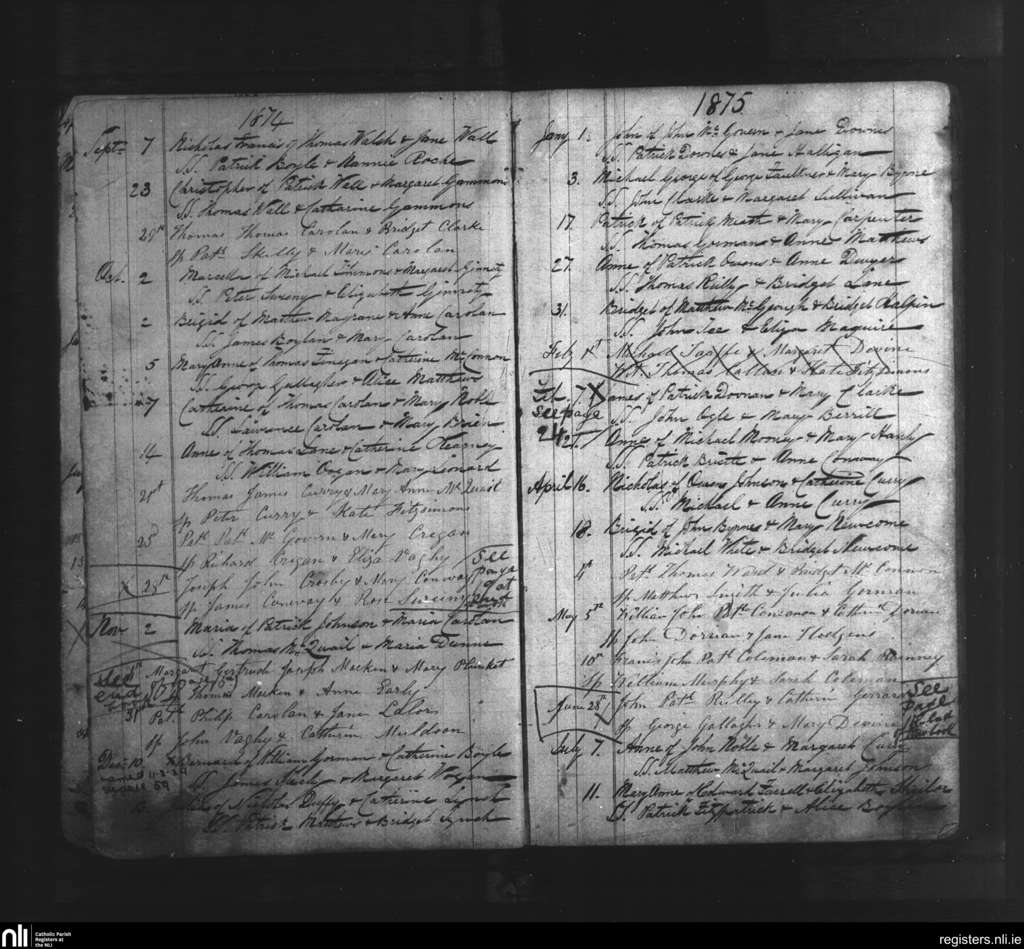 1874
Sept. 7 Nicholas Francis of Thomas Walsh & Jane Wall
SS. Patrick Boyle & Nannie Roche
23 Christopher of Patrick Wall & Margaret Gammons
SS. Thomas Wall & Catharine Gammons
29th Thomas Thomas Carolan & Bridget Clarke
Sp Patk Skelly & Maria Carolan
Oct. 2 Marcella of Michael Timmons & Margaret Ginnety
SS. Peter Sweeny & Elizabeth Ginnety
2 Brigid of Matthew Magrane & Anne Carolan
SS. James Boylan & Mary Carolan
5 Mary Anne of Thomas Finegan & Catherine McConnon
SS. George Gallagher & Alice Matthews
7 Catherine of Thomas Carolan & Mary Noble
SS. Lawrence Carolan & Mary Brien
14 Anne of Thomas Lane & Catherine Kearney
SS. William Cregan & Mary Leonard
21st Thomas James Curry & Mary Anne McQuail
Sp Peter Curry & Kate Fitzsimons
25 Patk Patk McGovern & Mary Cregan
Sp Richard Cregan & Eliza Vaghy
25th Joseph John Crosby & Mary Conway
Sp James Conway & Rose Sweeny
See page
at
Nov 2 Maria of Patrick Johnson & Maria Carolan
SS. Thomas McQuail & Maria Dunne
Margaret Gertrude Joseph Meeken & Mary Plunket
See end of
Thomas Meeken & Anne Early
31 Patk Philip Carolan & Jane Lalor
Sp John Vaghy & Catherine Muldoon
Dec. 10 Bernard of William Gorman & Catherine Boyle
SS. James Skelly & Margaret Wogan
of Nicholas Duffy & Catherine Lynch
SS. Patrick Matthews & Bridget Lynch
1875
Jany 1. John of John McGovern & Jane Downes
SS. Patrick Downes & Jane Halligan
3. Michael George of George Faulkner & Mary Byrne
SS. John Clarke & Margaret Sullivan
17. Patrick of Patrick Meath & Mary Carpenter
SS. Thomas Gorman & Anne Matthews
27. Anne of Patrick Owens & Anne Dwyer
SS. Thomas Reilly & Bridget Lane
31. Bridget of Matthew McGeough & Bridget Halpin
SS. John Lee & Eliza Maguire
Feby 1st Michael Taaffe & Margaret Devine
Wtt. Thomas Callan & Kate Fitzsimons
Feb. 7. James of Patrick Doonan & Mary Clarke
See page
24
SS. John Ogle & Mary Berrill
21. Anne of Michael Mooney & Mary Hand
SS. Patrick & Anne Conway
April 16. Nicholas of Owen Johnson & Catherine Curry
SS. Michael & Anne Curry
18. Brigid of John Byrne & Mary Newcome
SS. Michael White & Bridget Newcome
4th Patk Thomas Ward & Bridget McConnon
Sp Matthew Smith & Julia Gorman
May 5th William John Patk Concanon & Catherine Dornan
Sp John Dornan & Jane Hodgens
10th Francis John Patk Coleman & Sarah
Sp William Murphy & Sarah Coleman
June 28th John Patk Reilly & Catherine Gerrard
Sp George Gallagher & Mary Devine
See page
16 last
of new book
July 7. Anne of John Noble & Margaret Curry
SS. Matthew McQuail & Margaret Johnson
11. Mary Anne of Edward Farrell & Elizabeth Sheilds
SS. Patrick Fitzpatrick & Alice Boylan
nli
Catholic Parish
Registers at
the NLI
registers.nli.ie